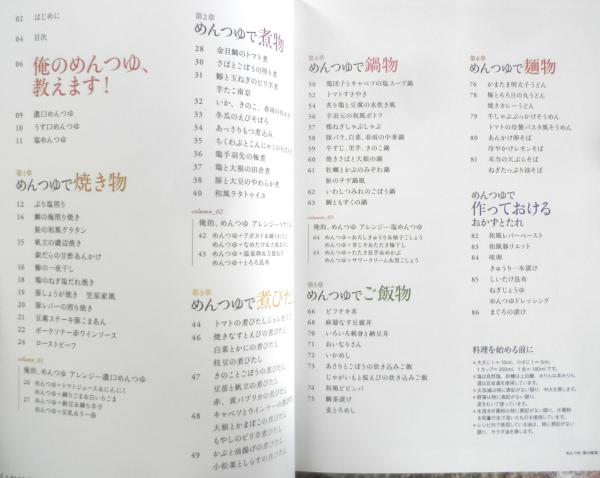 02 はじめに
04 目次
06 俺のめんつゆ、
教えます!
09 濃口めんつゆ
10 うす口めんつゆ
11 塩めんつゆ
第1章
めんつゆで焼き物
12 ぶり塩照り
14 鯛の梅照り焼き
鮭の和風グラタン
15 帆立の磯辺焼き
銀だらの甘酢あんかけ
16 鯵の一夜干し
18 鶏のねぎ塩だれ焼き
19 豚しょうが焼き 笠原家風
20 豚レバーの照り焼き
21 豆腐ステーキ豚こまあん
22 ポークソテー赤ワインソース
24 ローストビーフ
column_01
俺的、めんつゆ アレンジ―濃口めんつゆ
26 めんつゆ+トマトジュース&にんにく
めんつゆ+練りごま&白いりごま
27 めんつゆ+納豆&練り辛子
めんつゆ+豆乳&ラー油
第2章
めんつゆで煮物
28 金目鯛のトマト煮
30 さばとごぼうの照り煮
31 鯵と玉ねぎのピリ辛煮
芋たこ南京
32 いか、きのこ、春雨の
33 冬瓜のえびそぼろ
34 あっさりもつ煮込み
35 ちくわぶとこんにゃくの
36 鶏手羽先の梅煮
37 鶏と大根の田舎煮
38 豚と大豆のやわらか煮
40 和風ラタトゥイユ
column_02
俺的、めんつゆ アレンジ―
42 めんつゆ+アボカド&
めんつゆ+なめたけ&
44 めんつゆ+温泉卵&
めんつゆ+とろろ昆布
第3章
めんつゆで煮びたし
44 トマトの煮びたしジュレ
46 焼きなすとえんぴの煮びたし
白菜とかにの煮びたし
枝豆の煮びたし
47 きのことごぼうの煮びたし
豆苗と帆立の煮びたし
赤、黄パプリカの煮びたし
48 キャベツとウインナーの煮びたし
大根とかまぼこの煮びたし
もやしのピリ辛煮びたし
49 かぶと油揚げの煮びたし
小松菜としらすの煮びたし
第4章
めんつゆで鍋物
50 鶏団子とキャベツの塩スープ鍋
52 トマトすきやき
54 炙り鶏と豆腐の水炊き風
56 手羽元の和風ポトフ
57 鴨ねぎしゃぶしゃぶ
58 豚バラ、白菜、春雨の中華鍋
59 牛すじ、里芋、きのこ鍋
60 焼きさばと大根の鍋
61 牡蠣とかぶのみぞれ鍋
鮭のチゲ鍋風
62 いわしつみれのごぼう鍋
63 鯛ともずくの鍋
column_03
俺的、めんつゆ アレンジ―塩めんつゆ
64 めんつゆ+おろしきゅうり&柚子こしょう
めんつゆ+青じそ&たたき梅干し
65 めんつゆ+たたき長芋&めかぶ
めんつゆ+サワークリーム&黒こしょう
第5章
めんつゆでご飯物
66 ビフテキ丼
68 麻婆なす豆腐丼
70 いろいろ刺身と納豆丼
71 おいなりさん
72 いかめし
73 あさりとごぼうの炊き込みご飯
じゃがいもと桜えびの炊き込み飯
74 和風ビビンパ
75 鯛茶漬け
麦とろめし
第6章
めんつゆで麺物
76 かまたま明太子うどん
78 梅とろろ目の丸うどん
焼きカレーうどん
79 牛しゃぶぶっかけそうめん
トマトの冷製パスタ風そうめん
80 あんかけ卵そば
冷やかけレモンそば
81 本当の天ぷらそば
ねぎたっぷり油そば
めんつゆで
作っておける
おかずとたれ
82 和風レバーペースト
83 和風豚リエット
84 味卵
きゅうり一本漬け
85 しいたけ昆布
ねぎじょうゆ
めんつゆドレッシング
86 まぐろの漬け
料理を始める前に